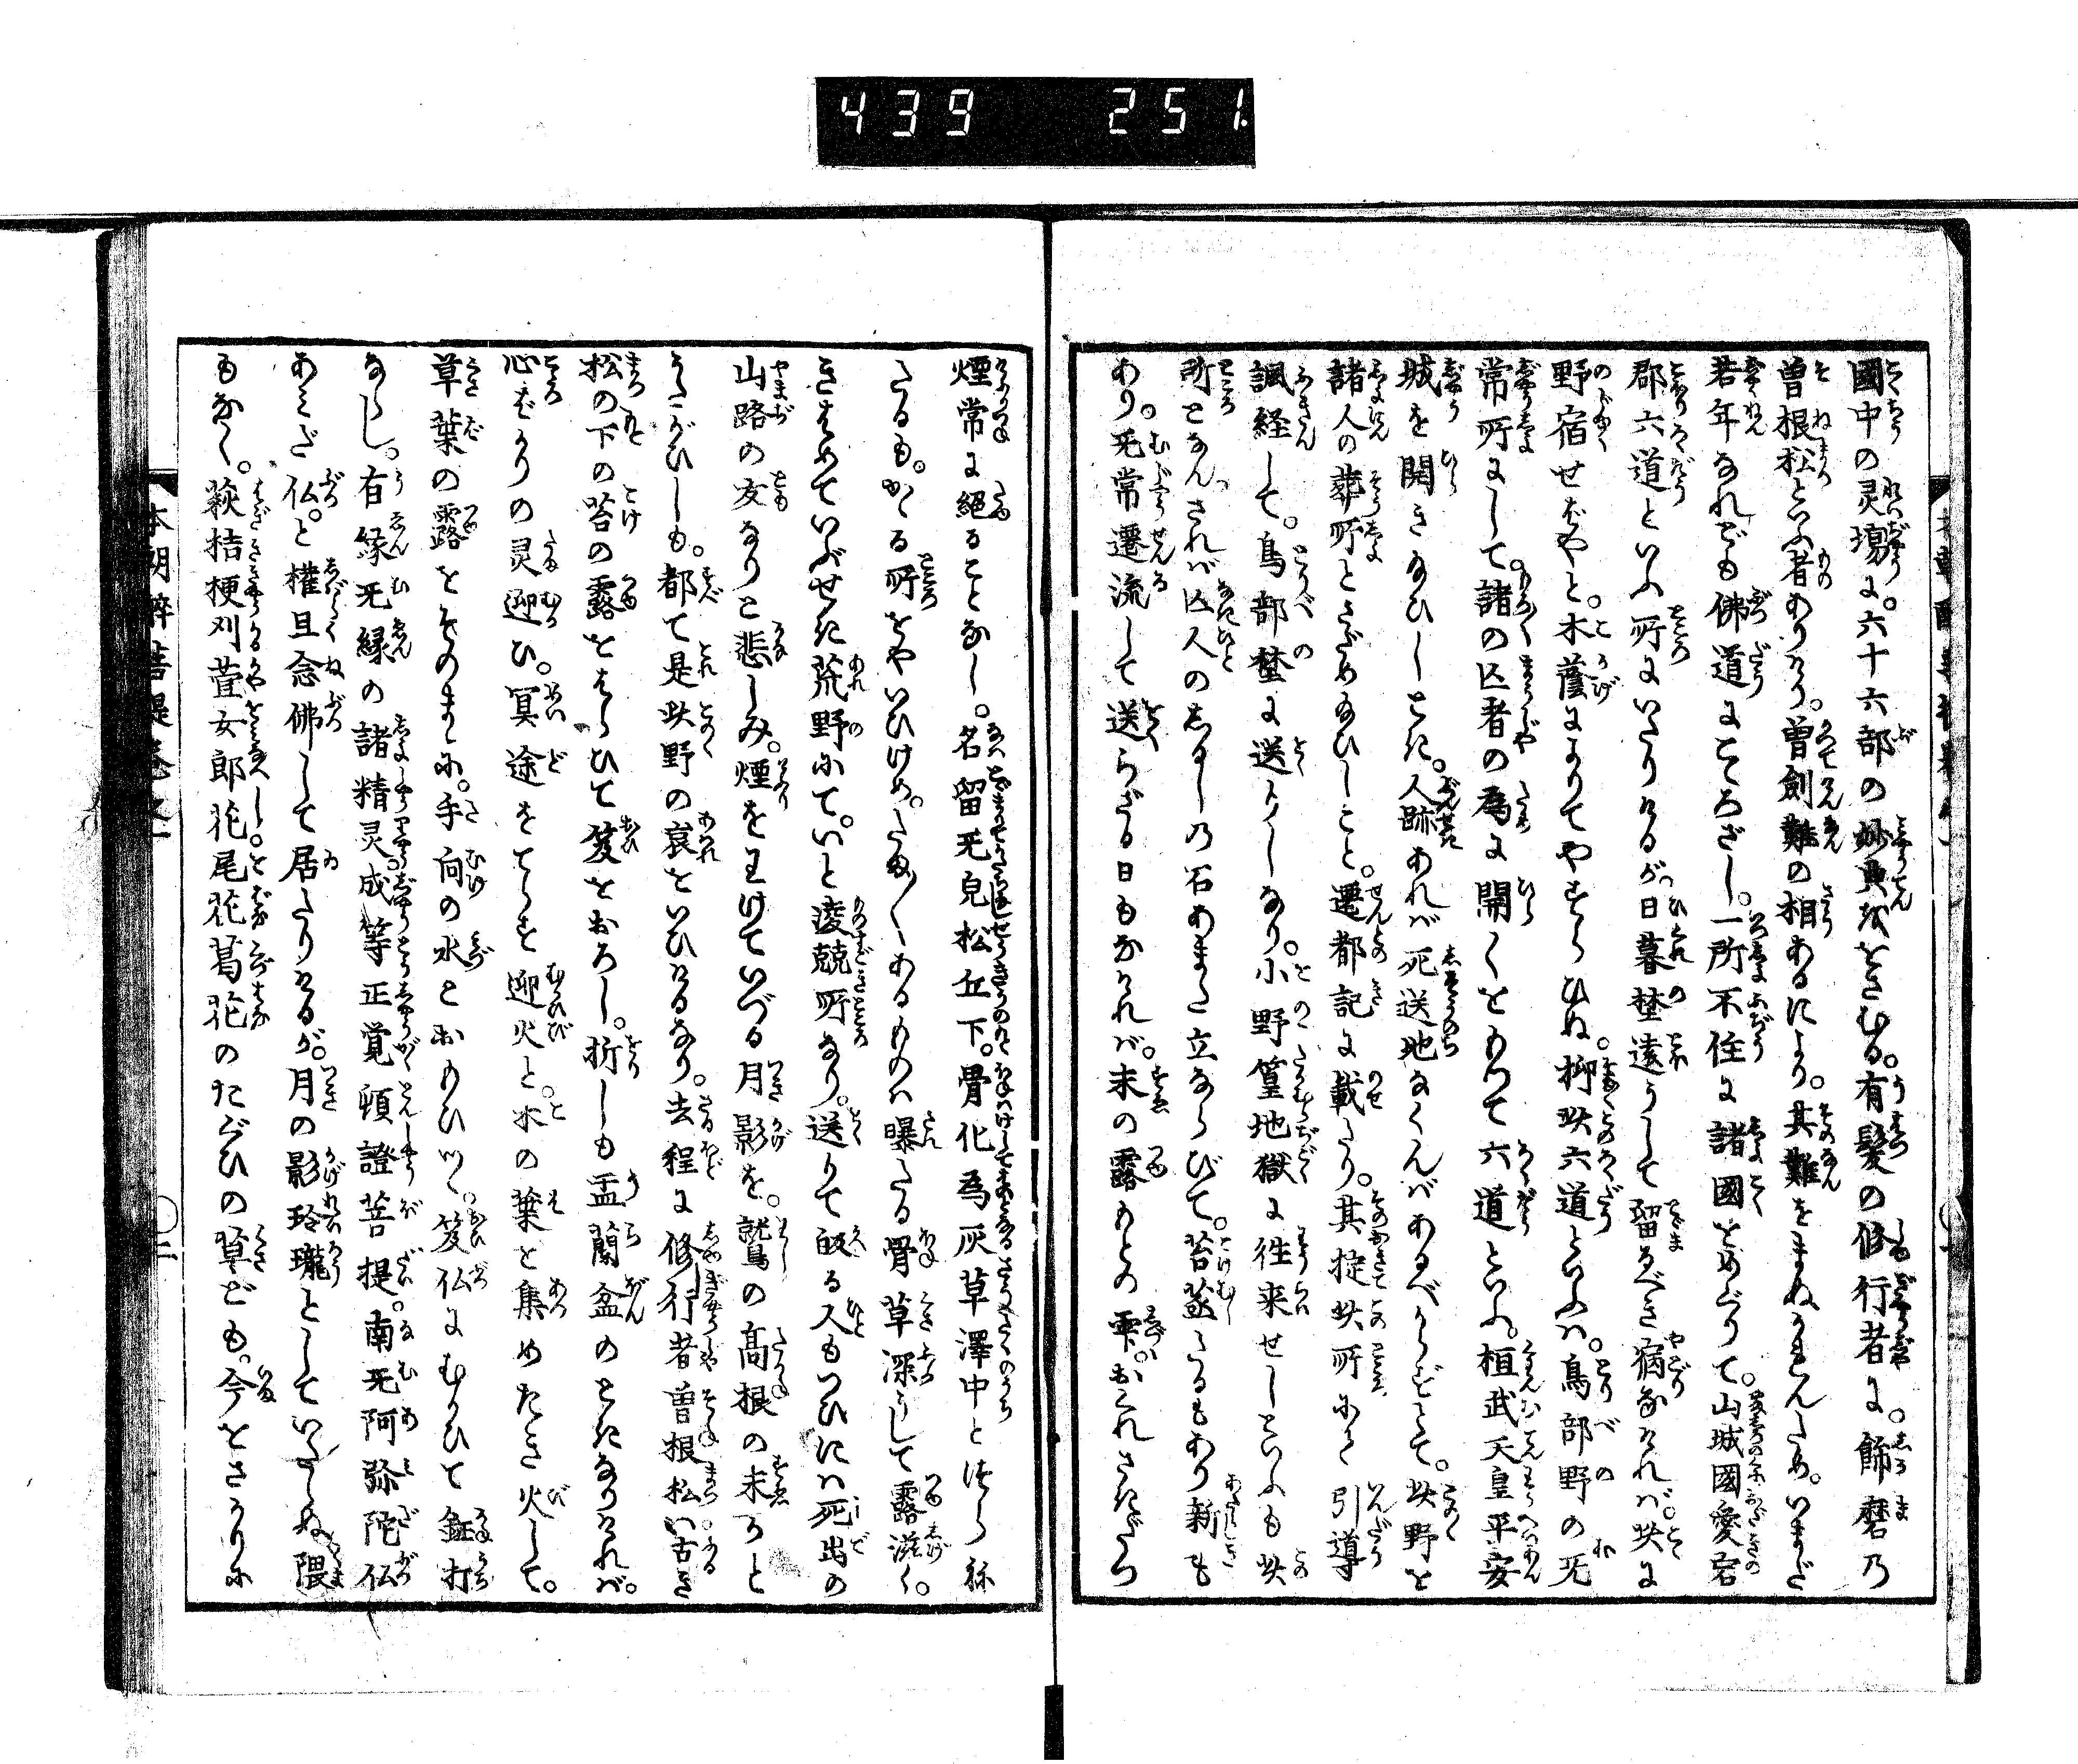 439 251
國中の灵場に。六十六部の妙典をおさむる。有髪の修行者に。飾磨の
曽根松といふ者ありけり。曽劍難の相あるにより。其難をまぬかれんため。いまだ
若年なれども佛道にこゝろざし。一所不住に諸國をめぐりて。山城國愛宕
郡六道といふ所にいたりけるが日暮埜遠うして留るべき宿なければ。此に
野宿せばやと。木蔭によりてやすらひぬ。抑此六道といふは。鳥部野の无
常所にして。諸の亡者の為に開くをもつて六道といふ。桓武天皇平安
城を開き給ひしとき。人跡あれば死送地なくんばあるべからずとて。此野を
諸人の葬所とさだめ給ひしこと。遷都記に載たり。其掟此所にて引導
諷経して。鳥部埜に送りしなり。小野篁地獄に往来せしといふも此
所となんされば亡人のしるしの石あまた立ならびて。苔蒸たるもあり新も
あり。无常遷流して送らざる日もなければ。末の露もとの雫。おくれさきだつ
煙常に絶ることなし。名留无皃松丘下。骨化為灰草澤中とつらね
たるも。かゝる所をやいひけめ。たま〳〵あるものは曝たる骨草深うして露滋く。
きはめていぶせき荒野にて。いと凌兢所なり。送りて皈る人もつひには死出の
山路の友なりと悲しみ。煙をわけていづる月影を。鷲の高根の末かと
うたがひしも。都て是此野の哀をいひけるなり。去程に修行者曽根松は古き
松の下の苔の露をはらひて笈をおろし。折しも盂蘭盆のときなりければ。
心ばかりの灵迎ひ。冥途をてらす迎火と。木の葉を集めたき火して。
草葉の露をそのまゝに。手向の水とおもひつゝ。笈仏にむかひて鉦打
ならし。有縁无縁の諸精灵成等正覚頓證菩提。南无阿弥陀仏
あみだ仏。と権且念佛して居たりけるが。月の影玲瓏としていたらぬ隈
もなく。萩桔梗刈萱女郎花尾花葛花のたぐひの草ども。今をさかりに
本朝酔菩提巻之一
〇二